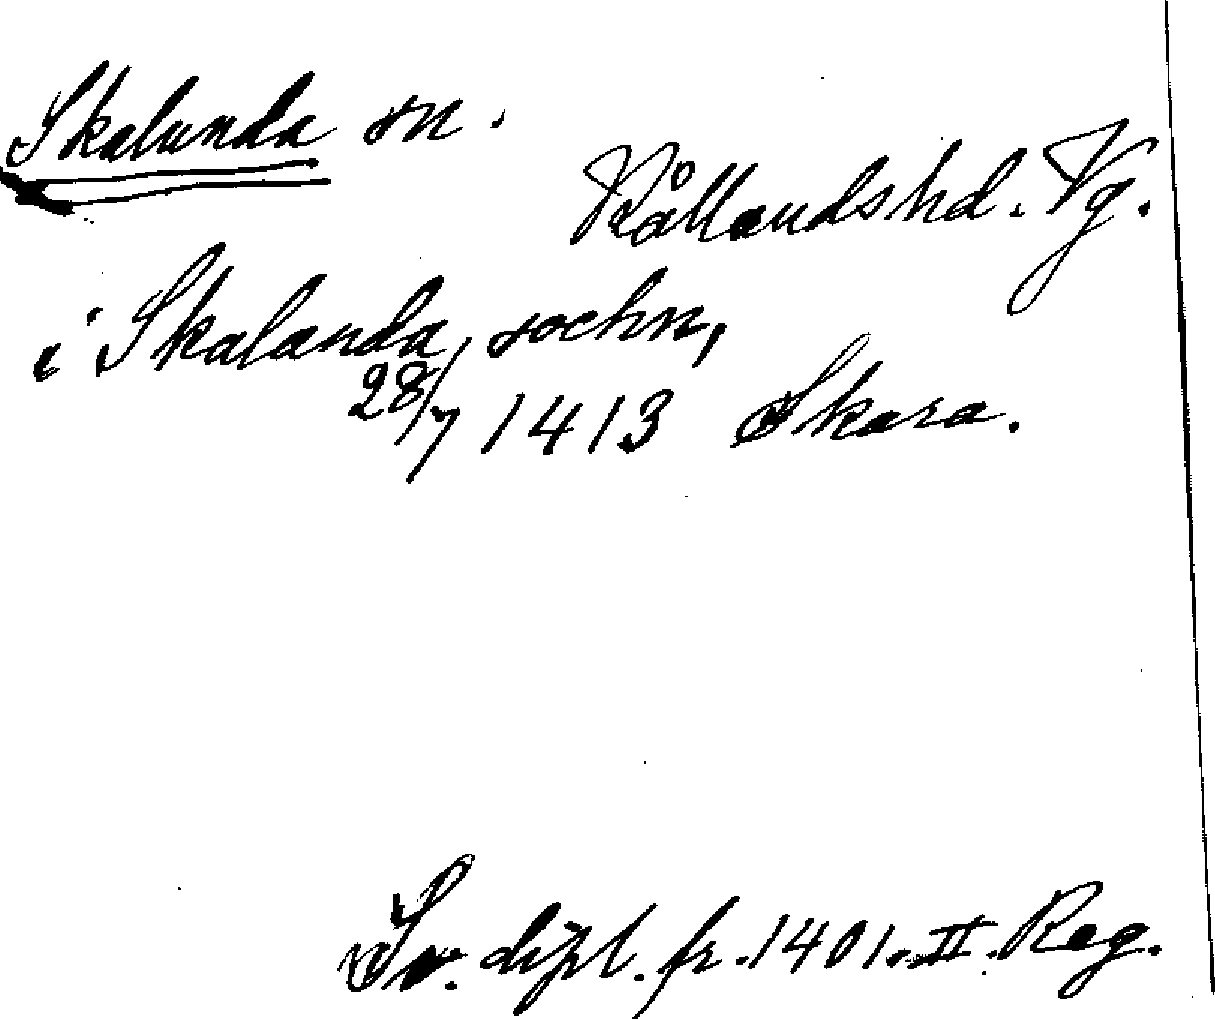 Skalunda sn.
Kållandshd. Vg.
i Skalanda sochn,
28/7 1413 Skara.
Sv. dipl. fr. 1401. II. Reg.